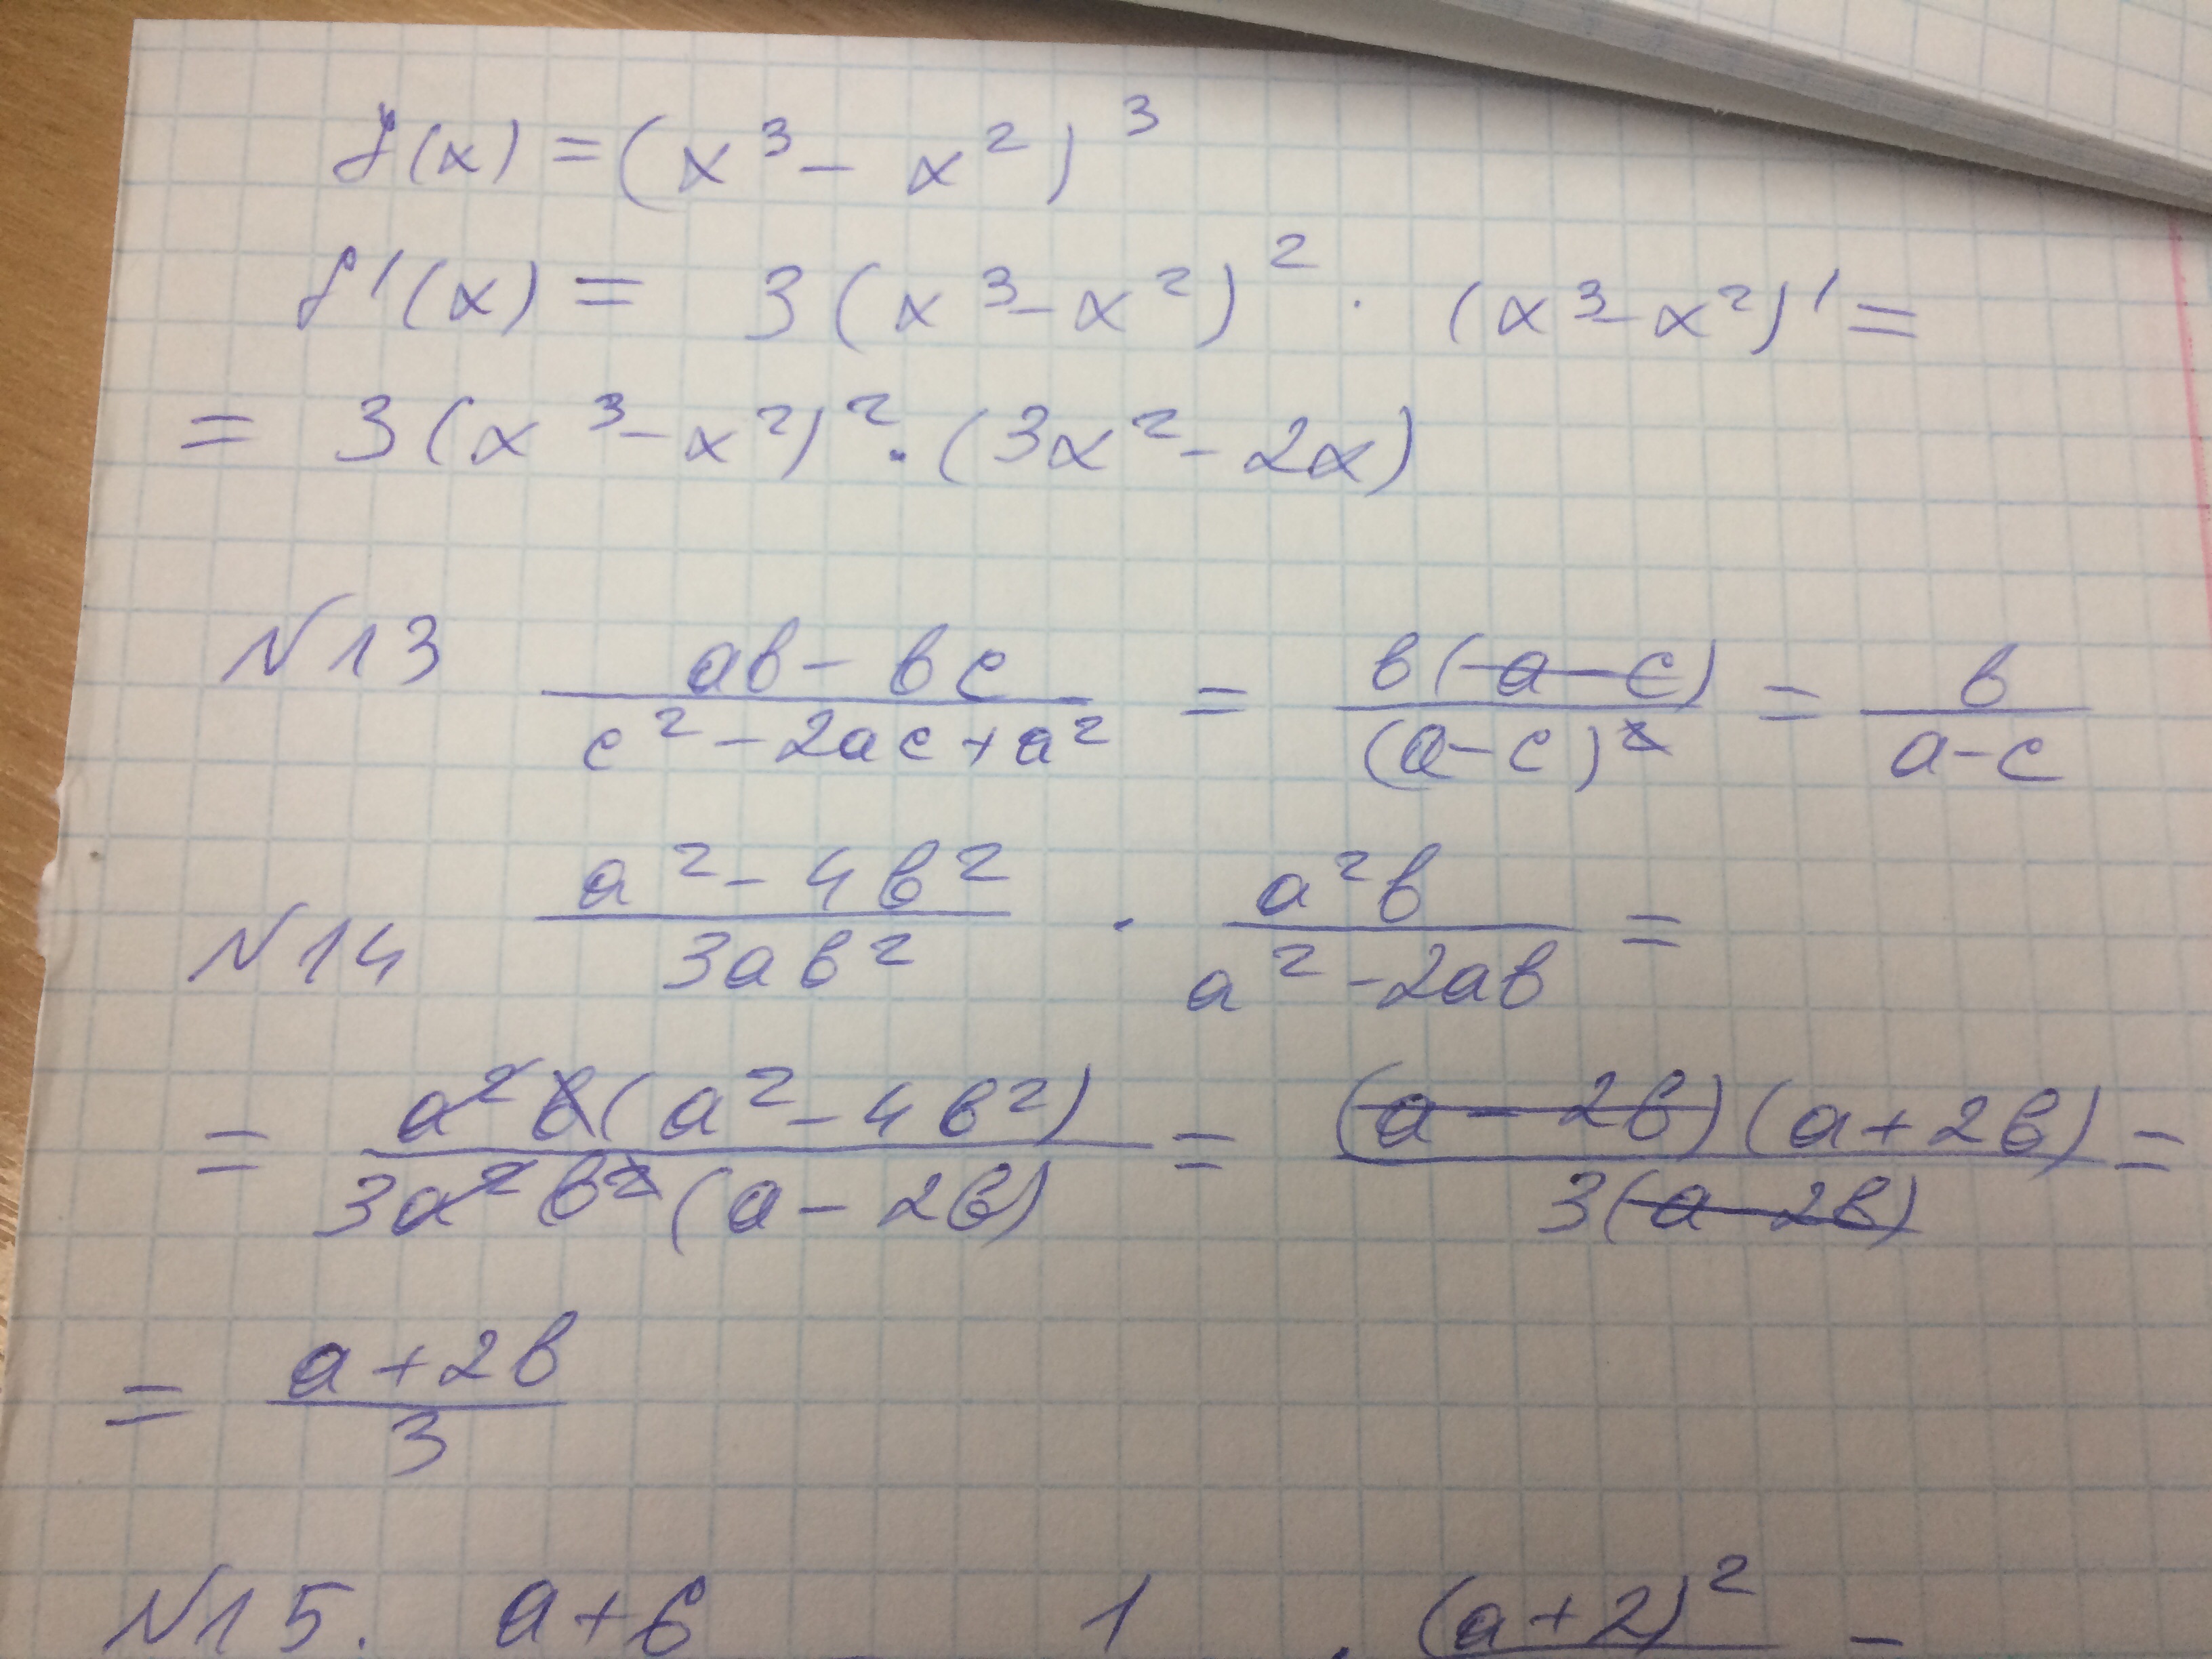 f(x) = (x³ - x²)³
f'(x) = 3(x³-x²)² · (x³-x²)' =
= 3(x³-x²)² · (3x²-2x)
N13 (ab - bc)/(c²-2ac+a²) = b(a-c)/(a-c)² = b/(a-c)
N14 (a²-4b²)/(3ab²) · (a²b)/(a²-2ab) =
= a²b(a²-4b²)/(3a²b²(a-2b)) = (a-2b)(a+2b)/(3(a-2b)) =
= (a+2b)/3
N15. a+6 1 . (a+2)² -